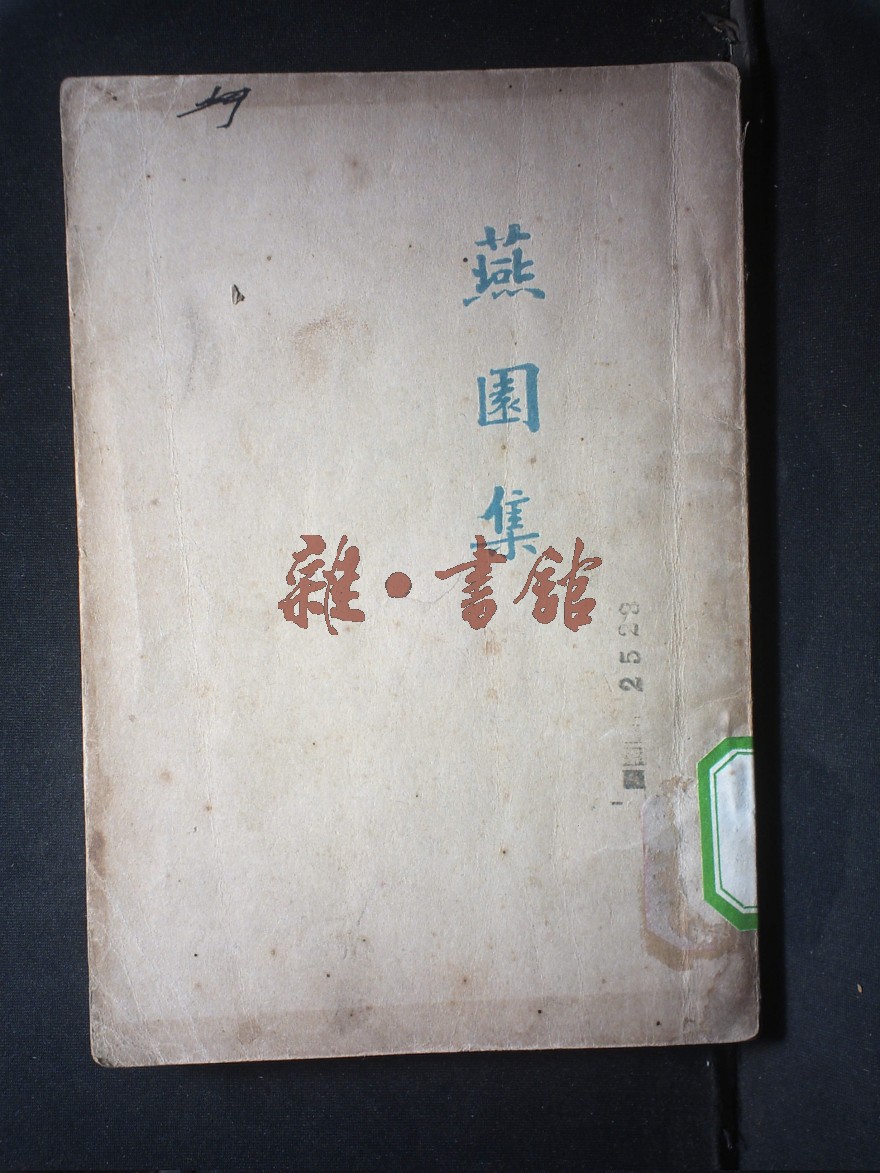 燕園集
雜·書館
2528